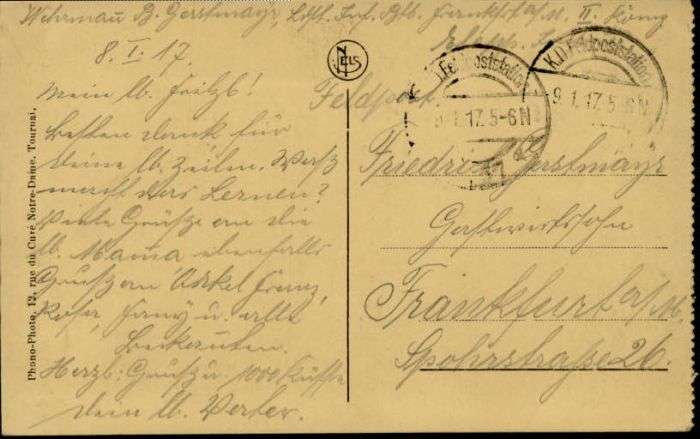 Wehrmann B. Gerstmayr, Ldst. Inf. Btl. Frankfurt a/M. II. Komp
8. I. 17.
Mein lb. Fritzl!
Besten Dank für
Deine lb. Zeilen. Was
macht das Lernen?
Viele Grüsse an die
lb. Mama ebenfalls
Gruss an Onkel Franz,
Fanny u. alle
Bekannten.
Herzl. Gruss u. 1000 Küsse
Dein lb. Vater.
NELS
Feldpost.
K.D. Feldpoststation
9.1.17.5-6N
K.D. Feldpoststation
9.1.17.5-6N
Friedrich Gerstmayr
Gastwirtssohn
Frankfurt a/M.
Spohrstrasse 26.
Phono-Photo, 12, rue du Curé Notre-Dame, Tournai.